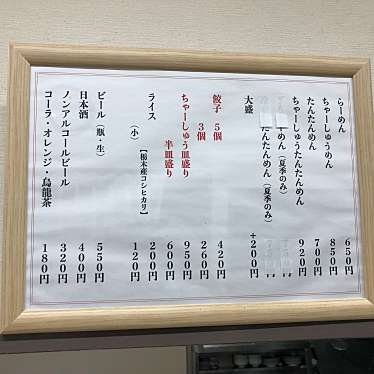 らーめん 650円
ちゃーしゅうめん 850円
たんたんめん 700円
ちゃーしゅうたんたんめん 920円
めん（夏季のみ）
たんたんめん（夏季のみ）
大盛 +200円
餃子 5個 420円
3個 260円
ちゃーしゅう皿盛り 950円
半皿盛り 600円
ライス 200円
（小） 120円
【栃木産コシヒカリ】
ビール（瓶・生） 550円
日本酒 400円
ノンアルコールビール 320円
コーラ・オレンジ・烏龍茶 180円